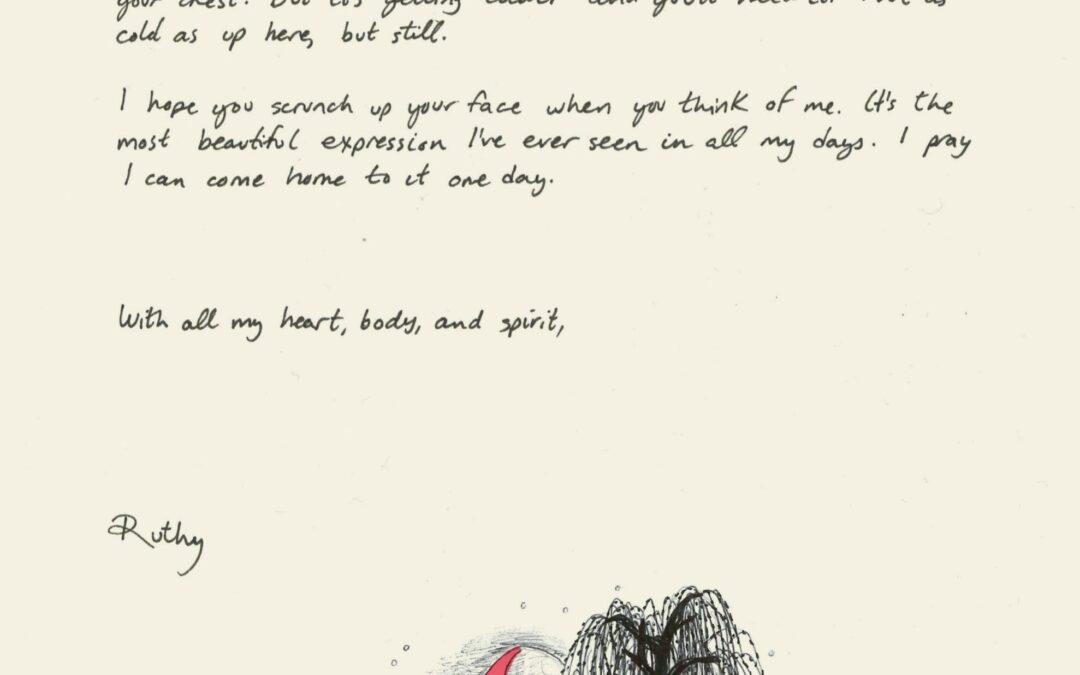 your chest. But it's getting colder and you'll need it. Not as
cold as up here, but still.
I hope you scrunch up your face when you think of me. It's the
most beautiful expression I've ever seen in all my days. I pray
I can come home to it one day.
With all my heart, body, and spirit,
Ruthy